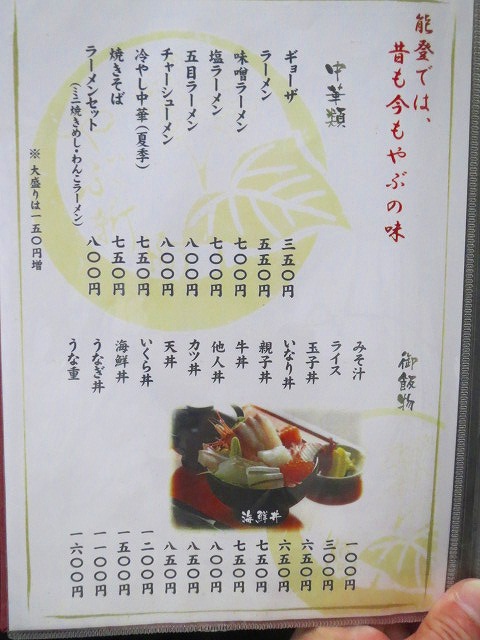 能登では、
昔も今もやぶの味
中華類
ギョーザ 三五〇円
ラーメン 五五〇円
味噌ラーメン 七〇〇円
塩ラーメン 七〇〇円
五目ラーメン 八〇〇円
チャーシューメン 八〇〇円
冷やし中華(夏季) 七五〇円
焼きそば 七五〇円
ラーメンセット 八〇〇円
(ミニ焼きめし・わんこラーメン)
※ 大盛りは一五〇円増
御飯物
みそ汁 一〇〇円
ライス 三〇〇円
玉子丼 六五〇円
いなり丼 六五〇円
親子丼 七五〇円
牛丼 七五〇円
他人丼 八〇〇円
カツ丼 八五〇円
天丼 八五〇円
いくら丼 一二〇〇円
海鮮丼 一五〇〇円
うなぎ丼 一一〇〇円
うな重 一六〇〇円
海鮮丼